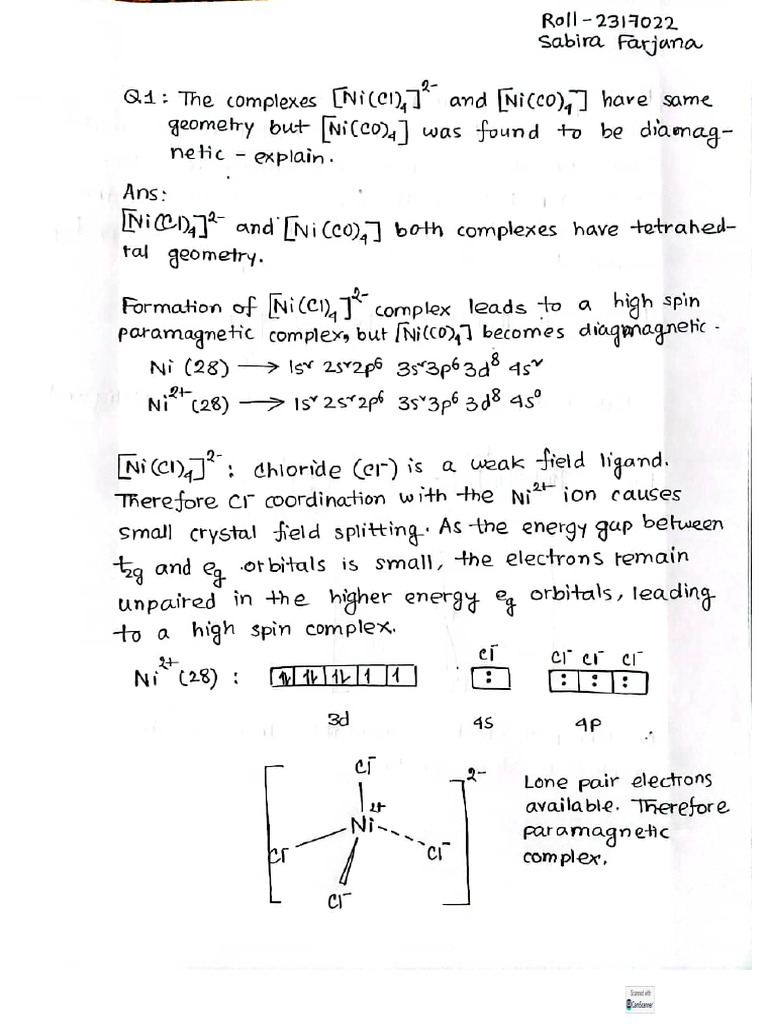 Roll-2317022
Sabira Farjana
Q.1: The complexes [Ni(Cl)₄]²⁻ and [Ni(CO)₄] have same
geometry but [Ni(CO)₄] was found to be diamag-
netic - explain.
Ans:
[Ni(Cl)₄]²⁻ and [Ni(CO)₄] both complexes have tetrahed-
ral geometry.
Formation of [Ni(Cl)₄]²⁻ complex leads to a high spin
paramagnetic complex, but [Ni(CO)₄] becomes diagmagnetic.
Ni (28) → 1s² 2s²2p⁶ 3s²3p⁶3d⁸ 4s²
Ni²⁺(28) → 1s² 2s²2p⁶ 3s²3p⁶3d⁸ 4s⁰
[Ni(Cl)₄]²⁻: chloride (Cl⁻) is a weak field ligand.
Therefore Cl⁻ coordination with the Ni²⁺ ion causes
small crystal field splitting. As the energy gap between
t₂g and eg orbitals is small, the electrons remain
unpaired in the higher energy eg orbitals, leading
to a high spin complex.
Cl⁻ Cl⁻ Cl⁻ Cl⁻
Ni²⁺(28) : ⥮ ⥮ ⥮ 1 1 : : : :
3d 4s 4p
[Cl⁻ ]²⁻
Ni²⁺
Cl⁻ Cl⁻
Cl⁻
Lone pair electrons
available. Therefore
paramagnetic
complex.
Scanned with
CamScanner